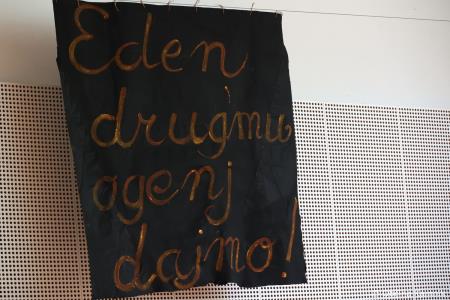 Eden
drugmu
ogenj
dajmo!